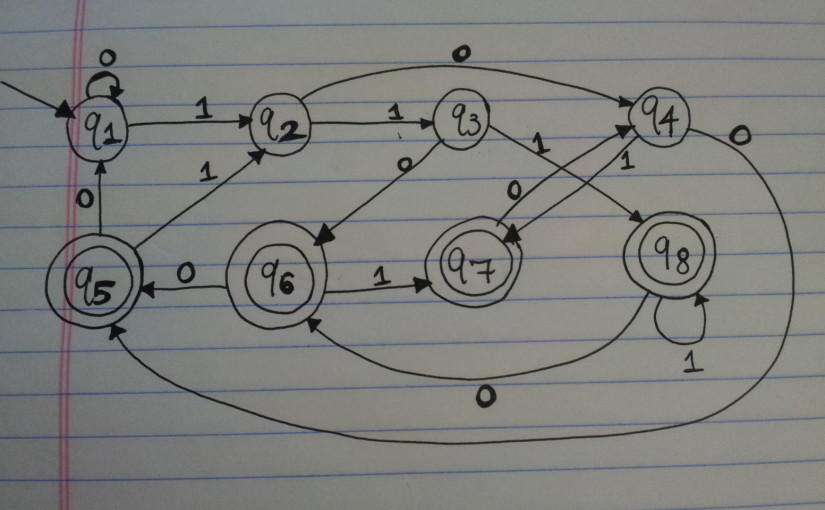 0
0
q1
1
q2
1
q3
q4
0
0
1
0
1
1
0
q5
0
q6
1
q7
q8
1
0